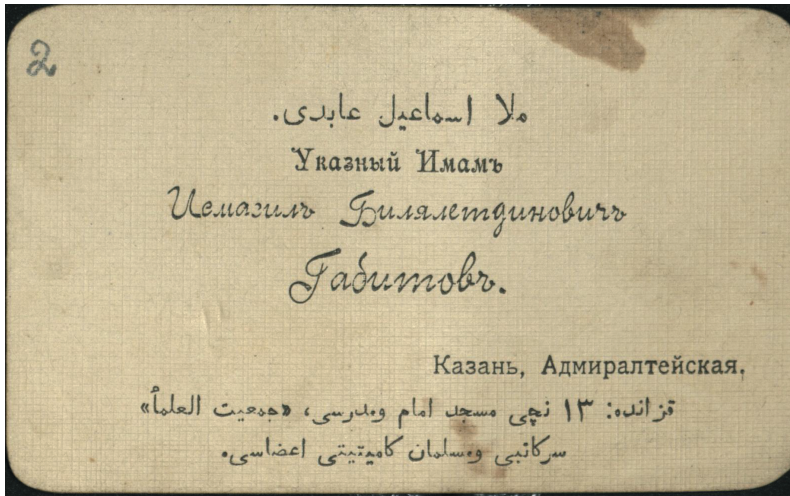 2
ملا اسماعيل عابدى.
Указный Имамъ
Исмагилъ Билялетдиновичъ
Габитовъ.
Казань, Адмиралтейская.
قزانده: ١٣ نچى مسجد امام ومدرسى، «جمعيت العلمأ»
سركاتبى ومسلمان كاميتيتى اعضاسى.